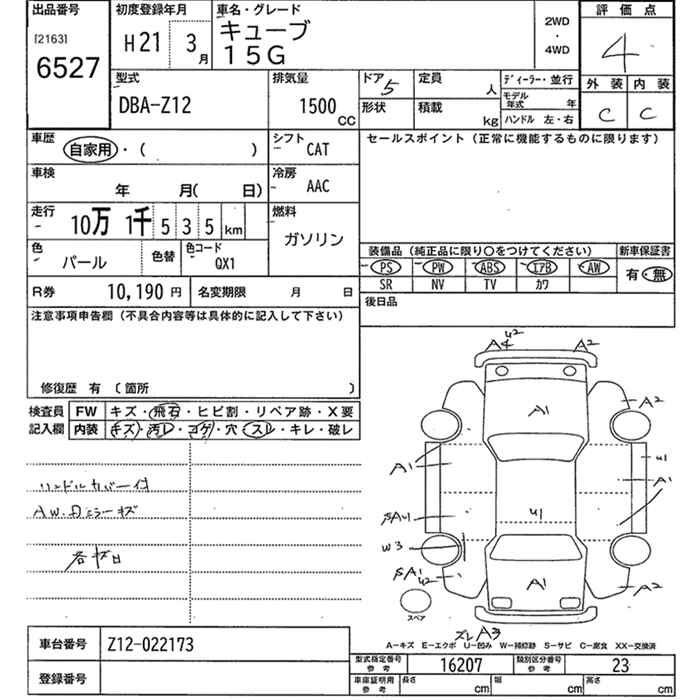 出品番号 初度登録年月 車名・グレード 2WD ・ 4WD 評価点
[2163] 6527 H21 3月 キューブ 15G 4
外装 内装
C C
型式 排気量 ドア 5 定員 人 ディーラー・並行
DBA-Z12 1500 CC 形状 積載 kg モデル年式 年
ハンドル 左・右
車歴 自家用・( ) シフト CAT セールスポイント (正常に機能するものに限ります)
車検 年 月( 日) 冷房 AAC
走行 10万 1千 5 3 5 km 燃料 ガソリン
色 パール 色替 色コード QX1
装備品 (純正品に限り○をつけてください) 新車保証書
PS PW ABS エアB AW 有・無
SR NV TV カワ
R券 10,190 円 名変期限 月 日 後日品
注意事項申告欄 (不具合内容等は具体的に記入して下さい)
修復歴 有 〔箇所 〕
検査員 FW キズ・飛石・ヒビ割・リペア跡・X要
記入欄 内装 キズ・汚レ・コゲ・穴・スレ・キレ・破レ
ハンドルカバー付
AW.Dミラーキズ
U2
A4 A2
A1 A2
A1 U1
A1
U1
W3
A1 U2
A1 A2
スペア
スレ A3
A-キズ E-エクボ U-凹み W-補修跡 S-サビ C-腐食 XX-交換済
車台番号 Z12-022173
型式指定番号 参考 16207 類別区分番号 参考 23
登録番号
車庫証明用 参考 長さ cm 幅 cm 高さ cm